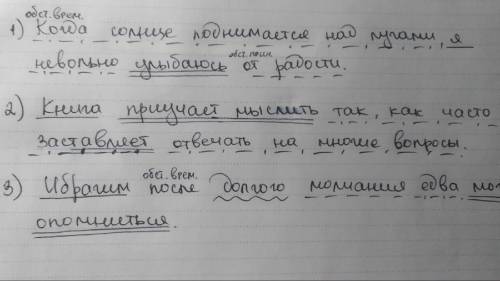 обст. врем.
1) Когда солнце поднимается над лугами, я
обст. прич.
невольно улыбаюсь от радости.
2) Книга приучает мыслить так, как часто
заставляет отвечать на многие вопросы.
обст. врем.
3) Ибрагим после долгого молчания едва мог
опомниться.